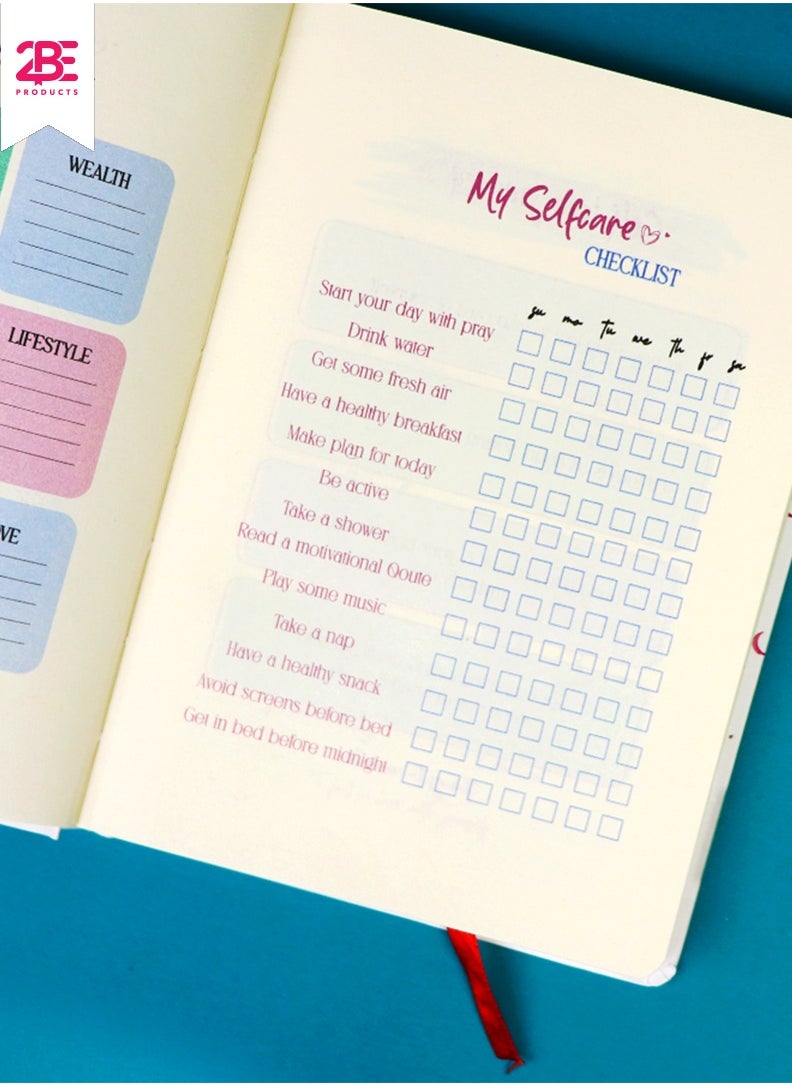 2BE
PRODUCTS
WEALTH
LIFESTYLE
VE
My Selfcare
CHECKLIST
su mo tu we th fr sa
Start your day with pray
Drink water
Get some fresh air
Have a healthy breakfast
Make plan for today
Be active
Take a shower
Read a motivational Qoute
Play some music
Take a nap
Have a healthy snack
Avoid screens before bed
Get in bed before midnight